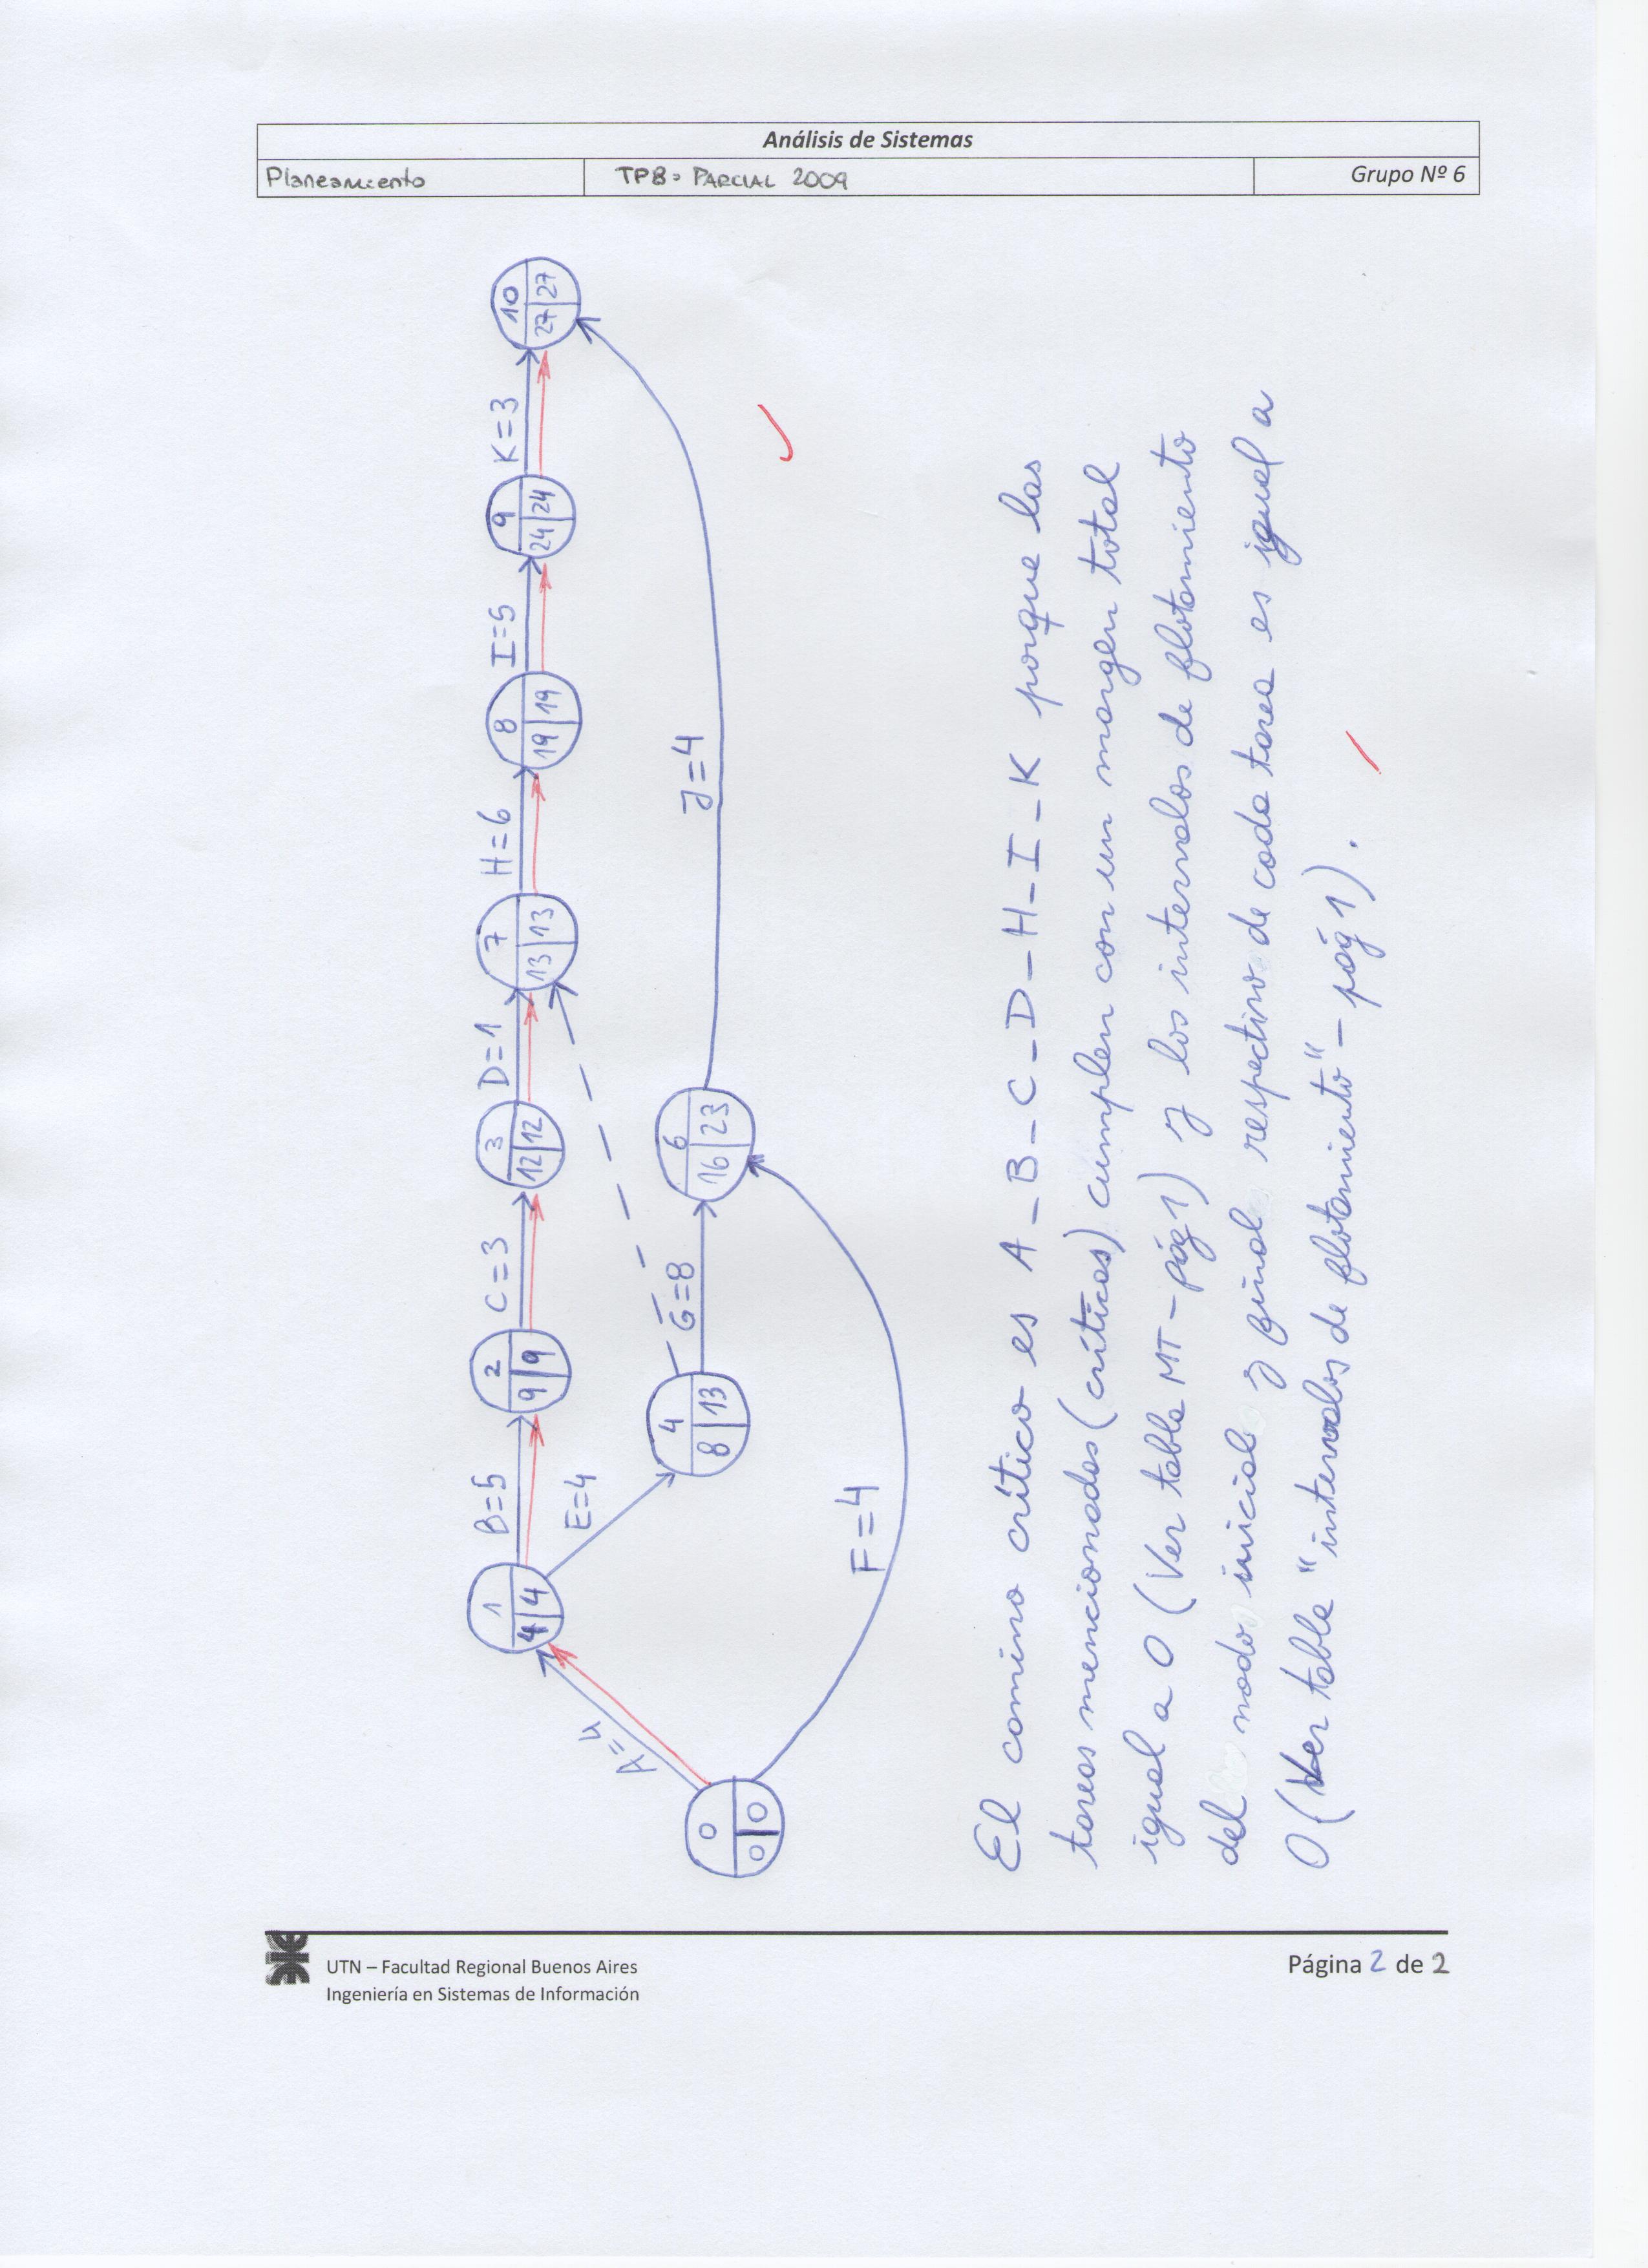 Análisis de Sistemas
Planeamiento
TP8: PARCIAL 2009
Grupo Nº 6
A=4
B=5
C=3
D=1
H=6
I=5
K=3
E=4
G=8
F=4
J=4
0
0 0
1
4 4
2
9 9
3
12 12
7
13 13
8
19 19
9
24 24
10
27 27
4
8 13
6
16 23
El camino crítico es A-B-C-D-H-I-K porque las
tareas mencionadas (críticas) cumplen con un margen total
igual a 0 (Ver tabla MT - pág 1) y los intervalos de flotamiento
del nodo inicial y final respectivo de cada tarea es igual a
0 (Ver tabla "intervalos de flotamiento" - pág 1).
UTN – Facultad Regional Buenos Aires
Ingeniería en Sistemas de Información
Página 2 de 2